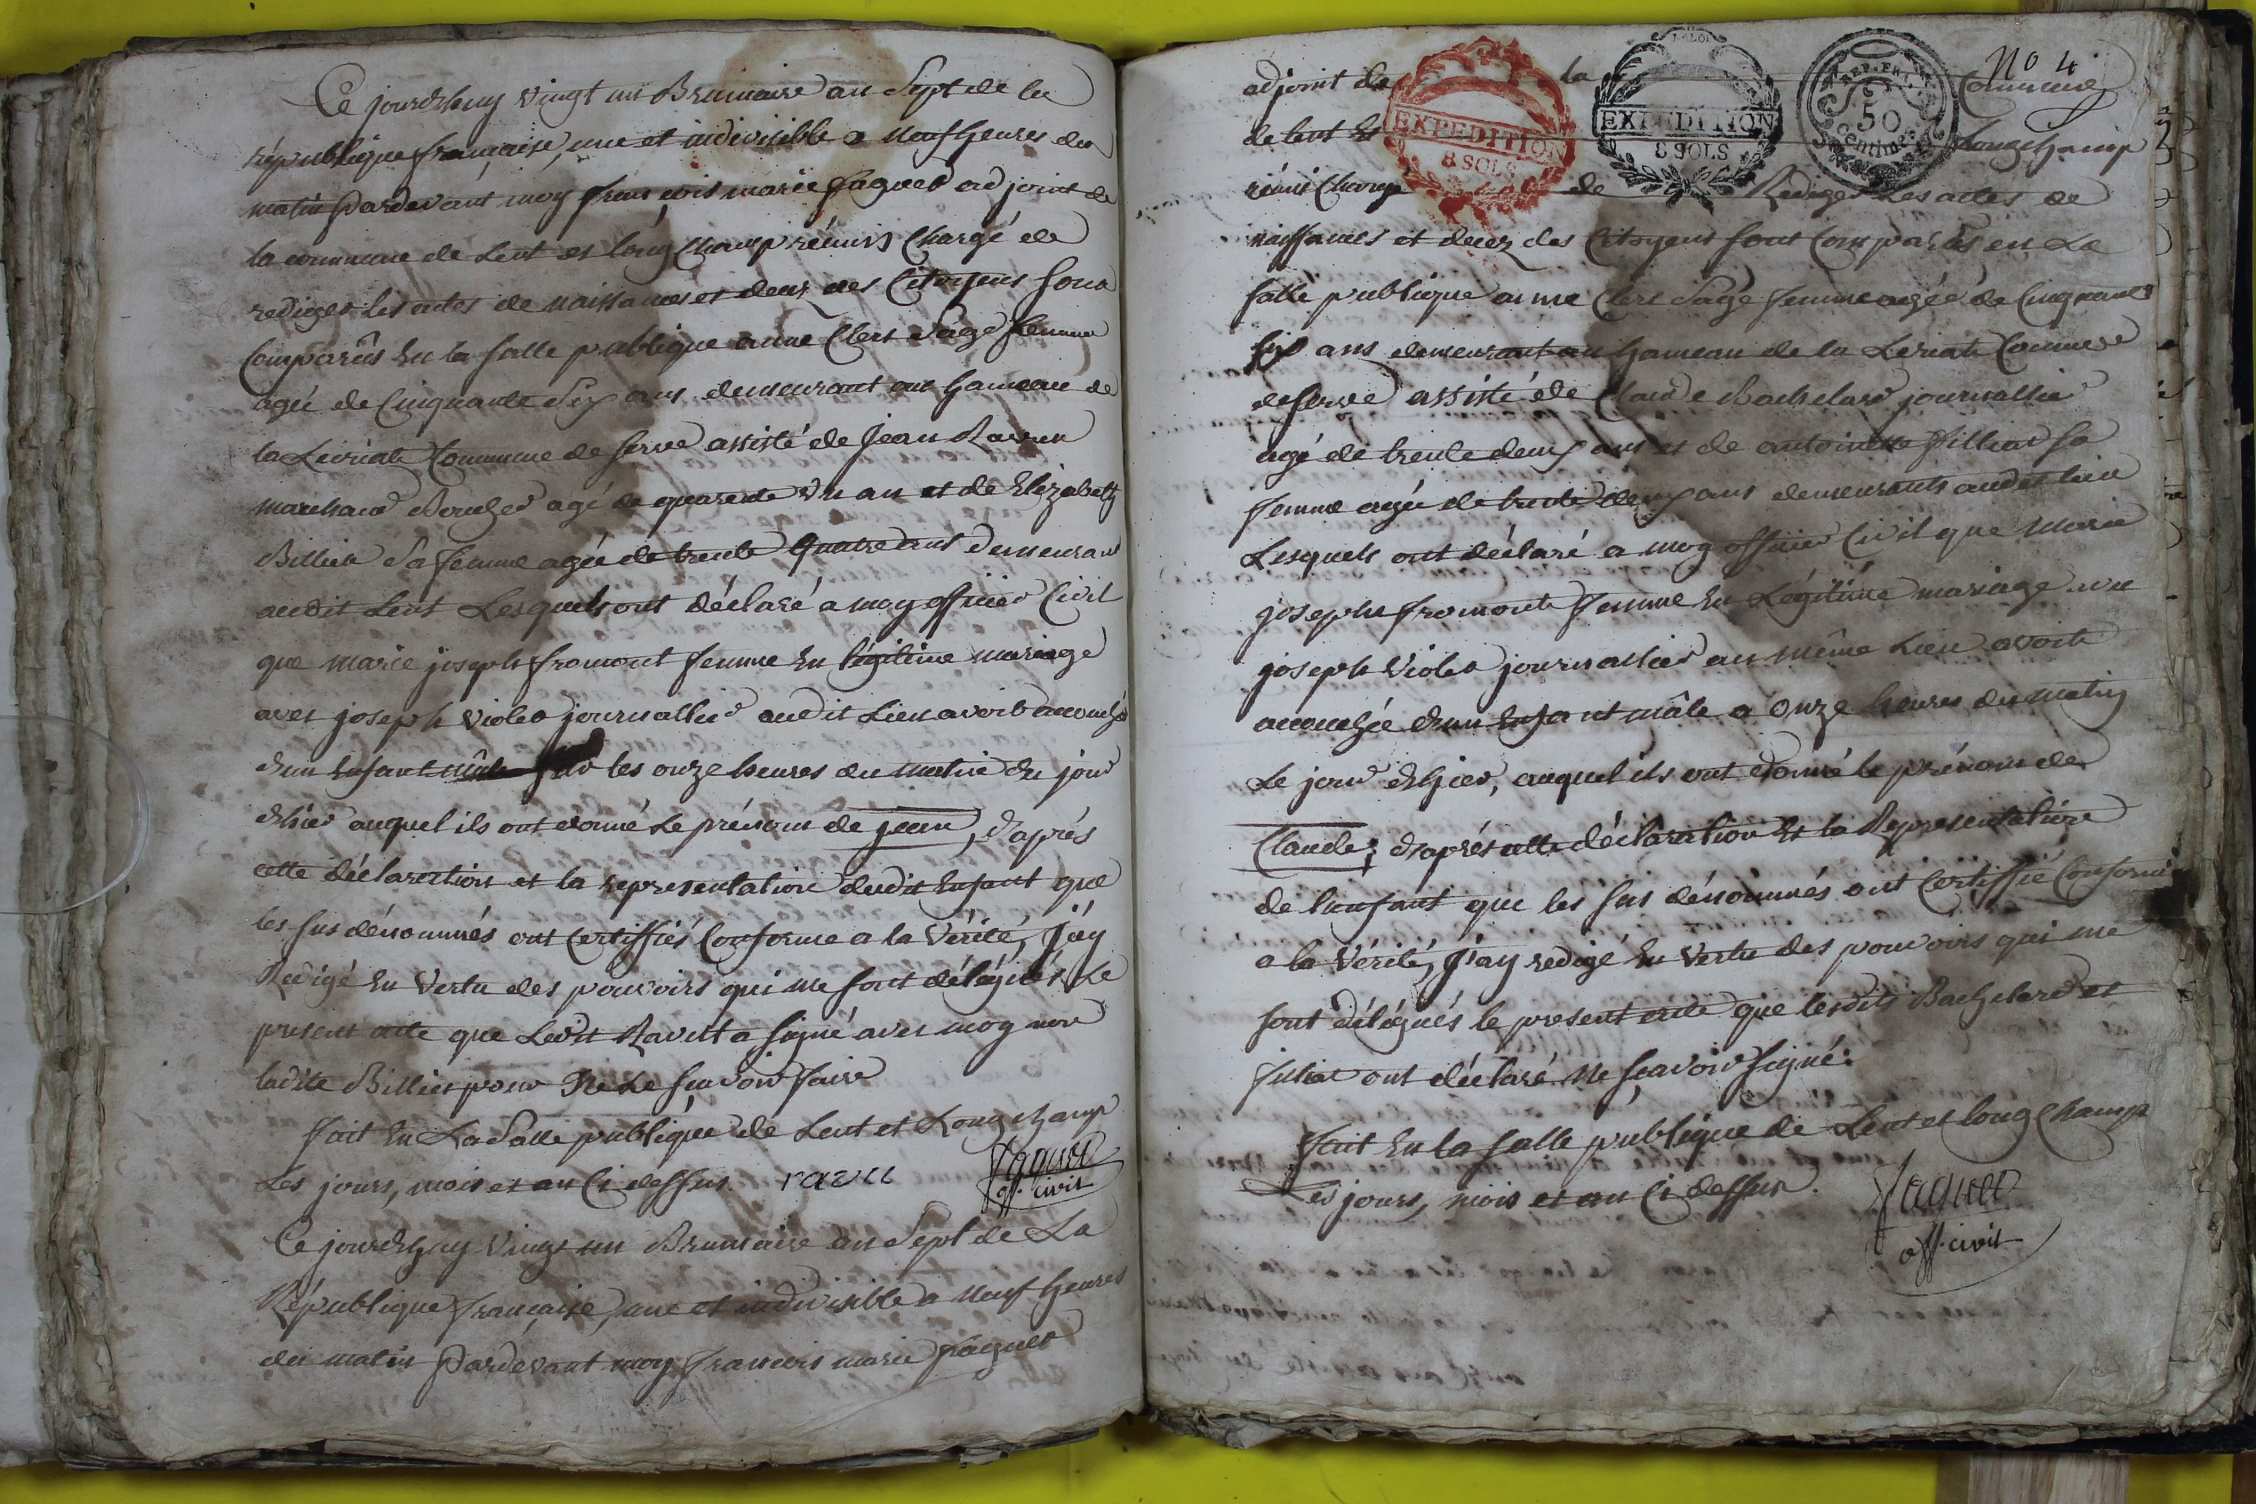 Ce jourdhuy vingt un Brumaire an Sept de la
république française, une et indivisible a neuf heures du
matin Pardevant moy françois marie faguet adjoint de
la commune de Lent et long champ réunis Chargé de
rediger les actes de naissances et decez des Citoyens sont
Comparûs En la salle publique anne Clerc Sage femme
agée de Cinquante Six ans demeurant au hameau de
la Leriate Commune de Serve assisté de Jean Ravu
marchand Boucher agé de quarente un an et de Elizabeth
Billiet Sa femme agée de trente quatre ans Demeurant
audit Lent Lesquels ont déclaré a moy officier Civil
que marie joseph fromont femme En légitime mariage
avec joseph violet journallier audit Lieu avoit accouché
d'un Enfant mâle sur les onze heures du matin du jour
d'hier auquel ils ont donné Le prénom de jean, D'après
cette déclaration et la representation dudit Enfant que
les sus dénommés ont Certiffiés Conforme a la Vérité, J'ay
Redigé En Vertu des pouvoirs qui me sont délégués Le
present acte que Ledit Ravut a signé avec moy non
ladite Billiet pour Ne Le scavoir faire
fait En La Salle publique de Lent et Longchamp
Les jours, mois et an Ci dessus. ravu faguet
off. civil
Ce jourdhuy Vingt un Brumaire an Sept de La
République française, une et indivisible a neuf heures
du matin Pardevant moy francois marie faguet
No 4
adjoint de la Commune
de lent et Longchamp
réunis Charge de Rediger Les actes de
EXPEDITION
8 SOLS
LA LOI
EXPEDITION
8 SOLS
REP. FRA.
50
centimes
naissances et decez des Citoyens sont Comparûs en La
salle publique anne Clerc Sage femme agée de Cinquante
six ans demeurant au hameau de la Leriate Commune
de Serve assisté de Claude Bachelard journallier
agé de trente deux ans et de antoinette Filliat sa
femme agée de trente deux ans demeurants audit lieu
Lesquels ont déclaré a moy officier Civil que Marie
josephe fromont femme En Légitime mariage du
joseph Violet journallier au même Lieu avoit
accouchée d'un Enfant mâle a Onze heures du matin
Le jour d'hier, auquel ils ont donné le prénom de
Claude; d'après cette déclaration Et la Representation
de l'enfant que les sus dénommés ont Certiffié Conforme
a la Vérité, J'ay redigé En Vertu des pouvoirs qui me
sont délégués le present acte que lesdits Bachelard et
filliat ont déclaré ne sçavoir signé.
Fait En la salle publique de Lent et long champ
Les jours, mois et an Ci dessus.
faguet
off. civil